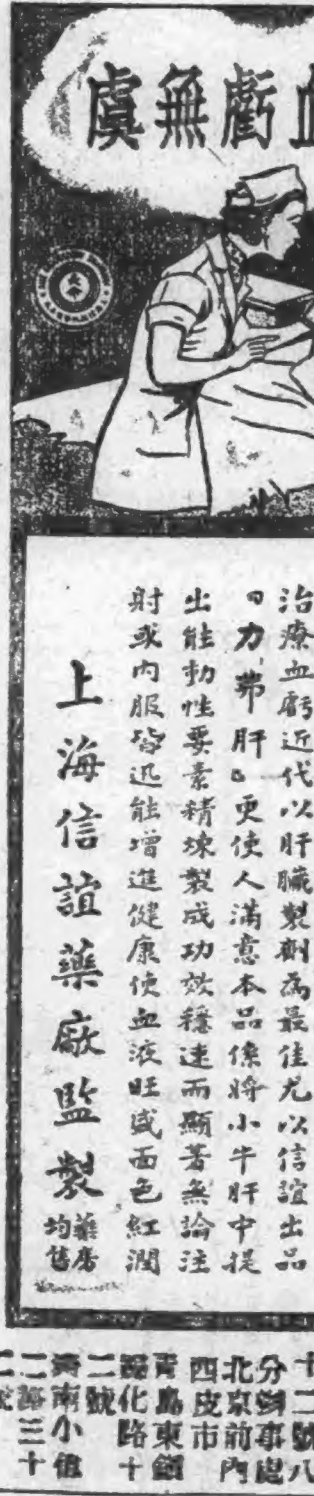 血虧無虞
治療血虧近代以肝臟製劑為最佳尤以信誼出品
「力弗肝」更使人滿意本品係將小牛肝中提
出能動性要素精煉製成功效穩速而顯著無論注
射或內服皆迅能增進健康使血液旺盛面色紅潤
上海信誼藥廠監製
藥房
均售
十二號八
分辦事處
北京前內
四皮市
青島東鎮
化路十
二號
濟南小
二路三十
二號